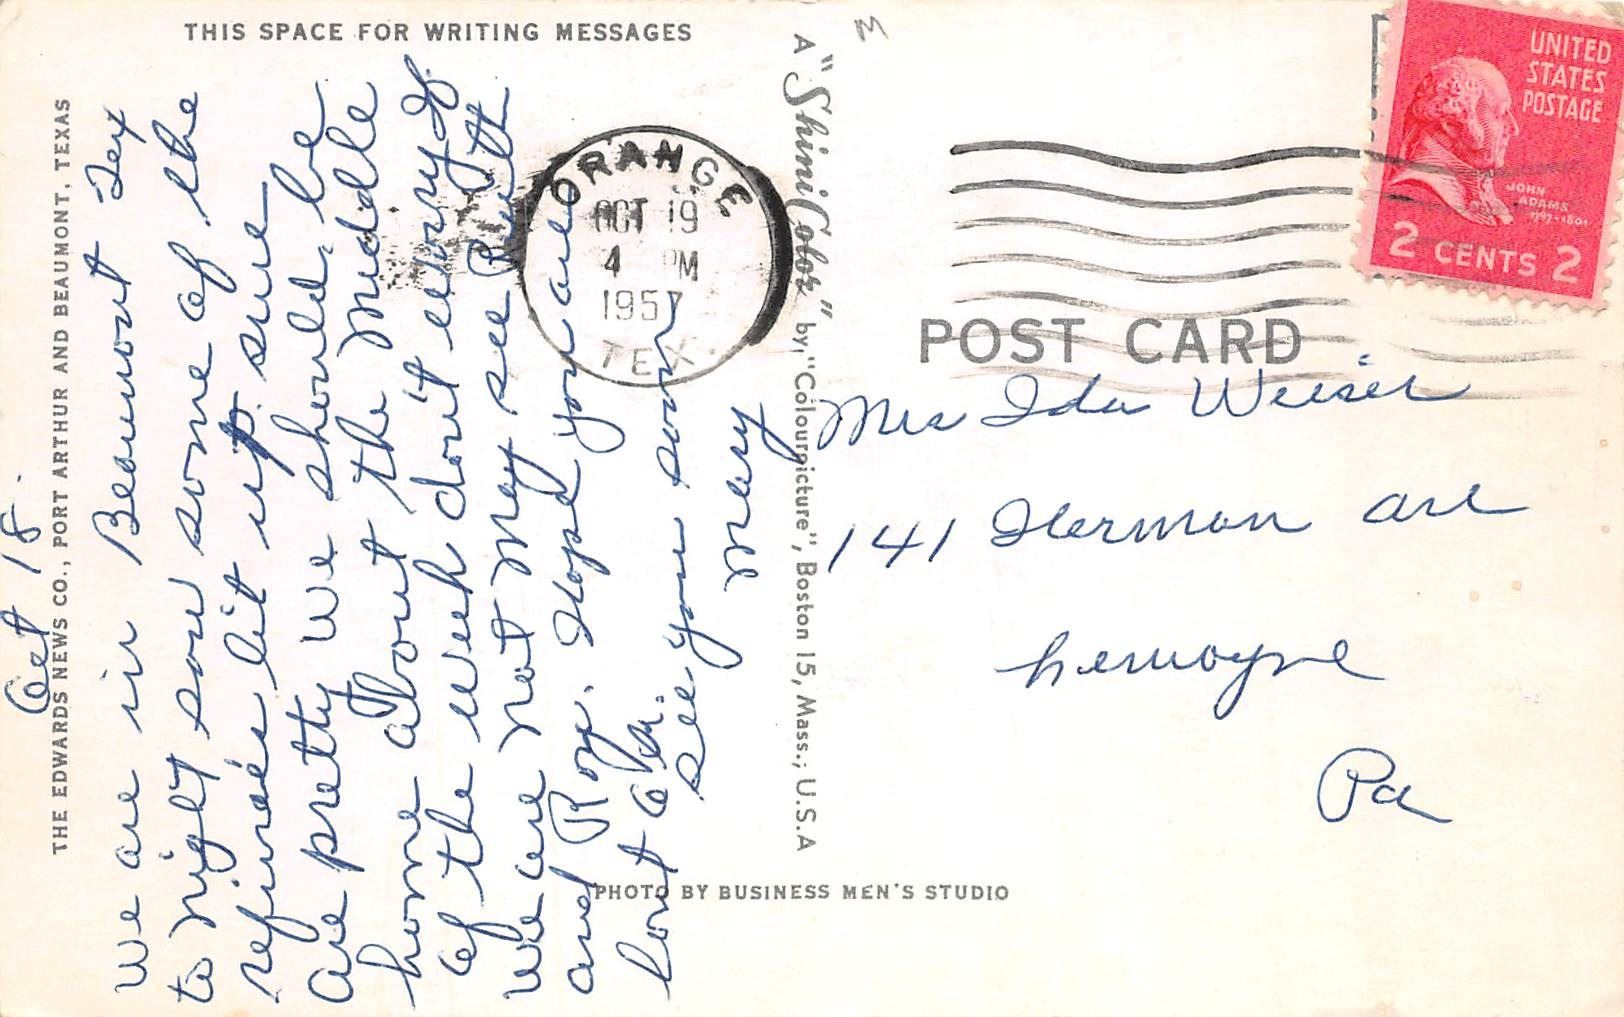 THIS SPACE FOR WRITING MESSAGES
THE EDWARDS NEWS CO., PORT ARTHUR AND BEAUMONT, TEXAS
Oct 18.
We are in Beaumont Tex
to night saw some of the
refineries lit up. sure
are pretty we should be
home about the middle
of the week don't worry if
we are not may see Ruth
and Roy. Hope you are
see you soon
Mary
A "ShiniColor" by, "Colourpicture", Boston 15, Mass.; U.S.A
PHOTO BY BUSINESS MEN'S STUDIO
ORANGE
OCT 19
4 PM
1957
TEX.
UNITED
STATES
POSTAGE
JOHN
ADAMS
1797-1801
2 CENTS 2
POST CARD
Mrs Ida Weiser
141 Herman ave
Lemoyne
Pa